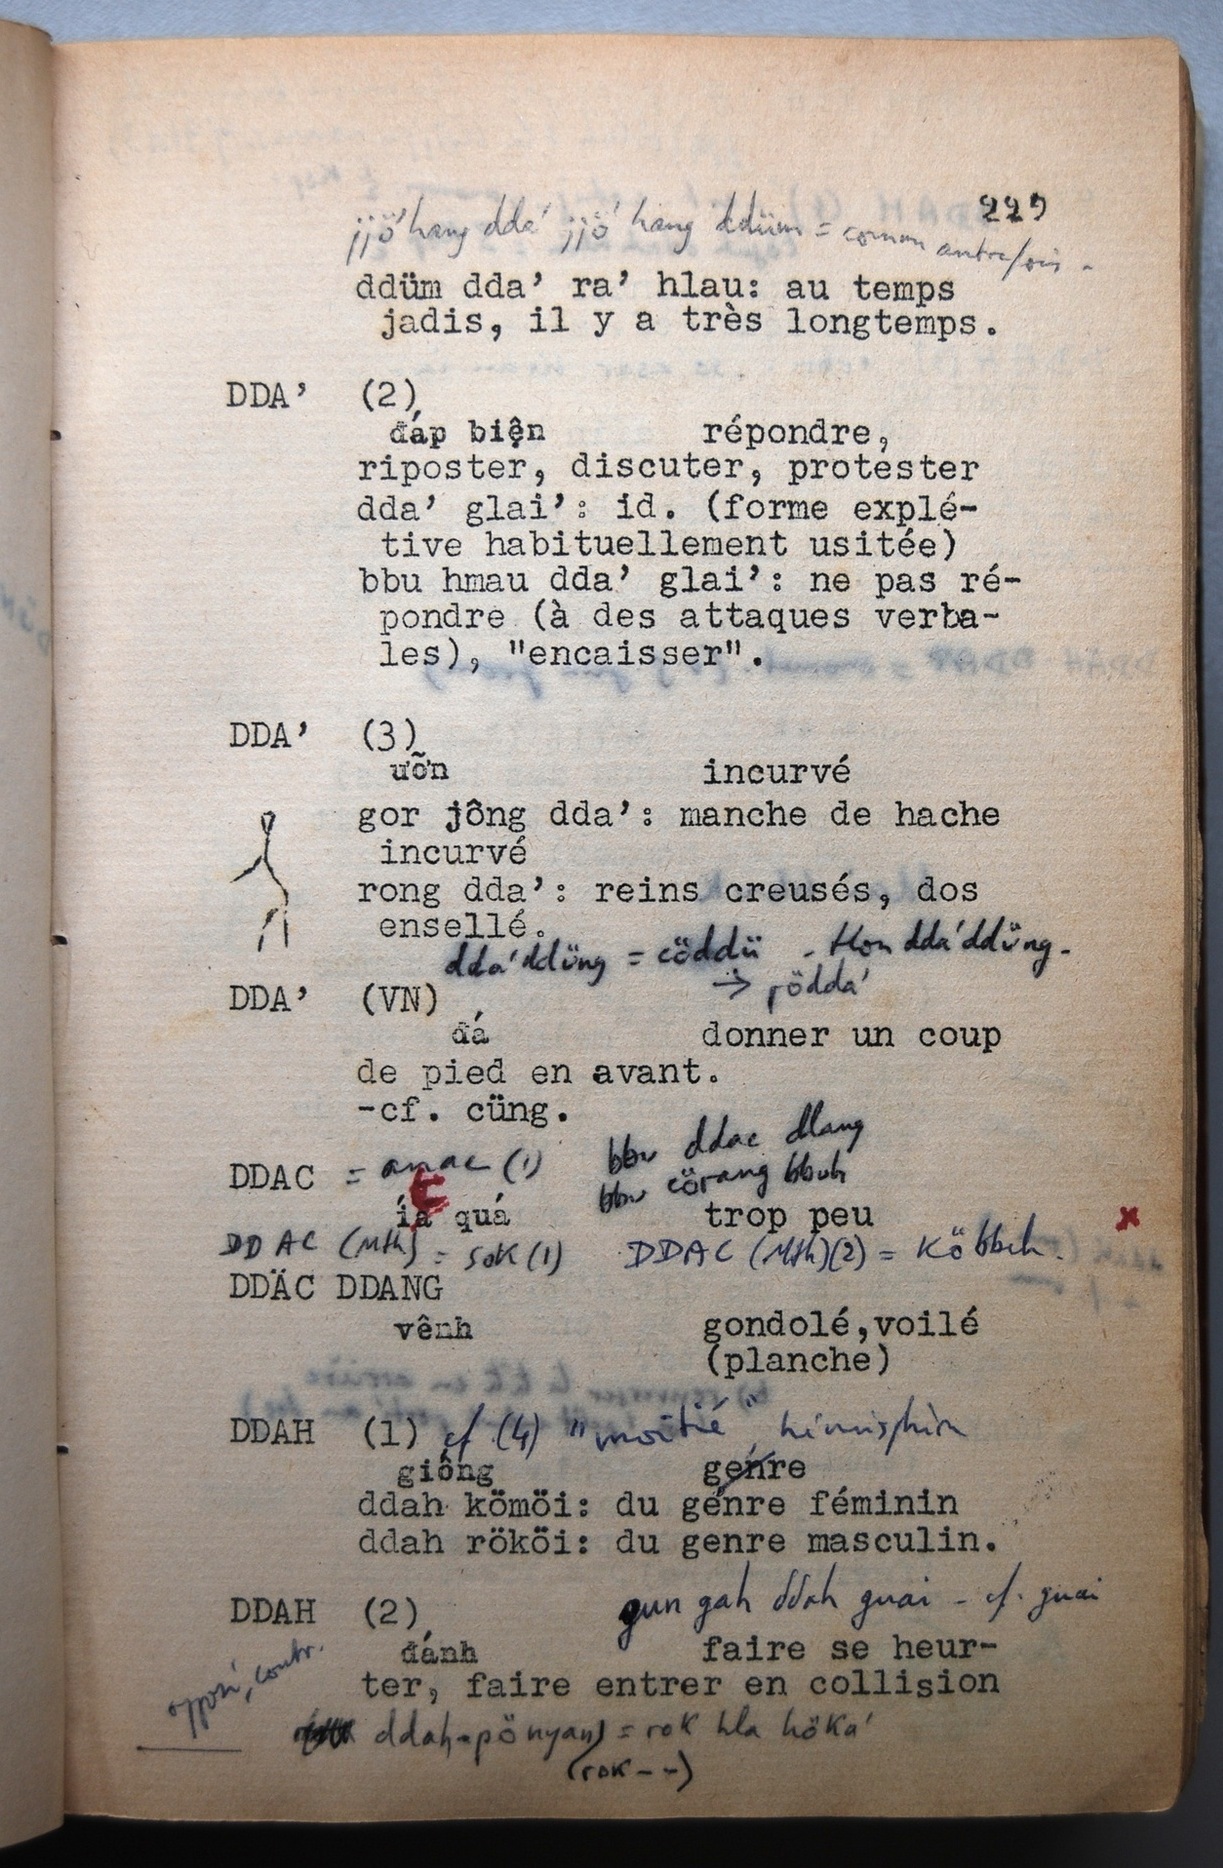 229
jjö' hang dda' jjö' hang ddüm = comme autrefois.
ddüm dda' ra' hlau: au temps
jadis, il y a très longtemps.
DDA' (2)
đáp biện répondre,
riposter, discuter, protester
dda' glai': id. (forme explé-
tive habituellement usitée)
bbu hmau dda' glai': ne pas ré-
pondre (à des attaques verba-
les), "encaisser".
DDA' (3)
ưỡn incurvé
gor jông dda': manche de hache
incurvé
rong dda': reins creusés, dos
ensellé.
dda' ddüng = cöddü - Hon dda' ddüng.
→ rödda'
DDA' (VN)
đá donner un coup
de pied en avant.
-cf. cüng.
bbu ddac dlang
DDAC = anac (1)
bbu cörang bbuh
ít quá trop peu x
DDAC (Mth) = sok (1) DDAC (Mth)(2) = Köbbeh.
DDÄC DDANG
vênh gondolé,voilé
(planche)
DDAH (1) cf (4) "moitié" hémisphère
giống genre
ddah kömöi: du genre féminin
ddah rököi: du genre masculin.
DDAH (2) gun gah ddah guai - cf. guai
đánh faire se heur-
opposé, contr.
ter, faire entrer en collision
ddah-pönyan) = rok hla höka'
(rok--)